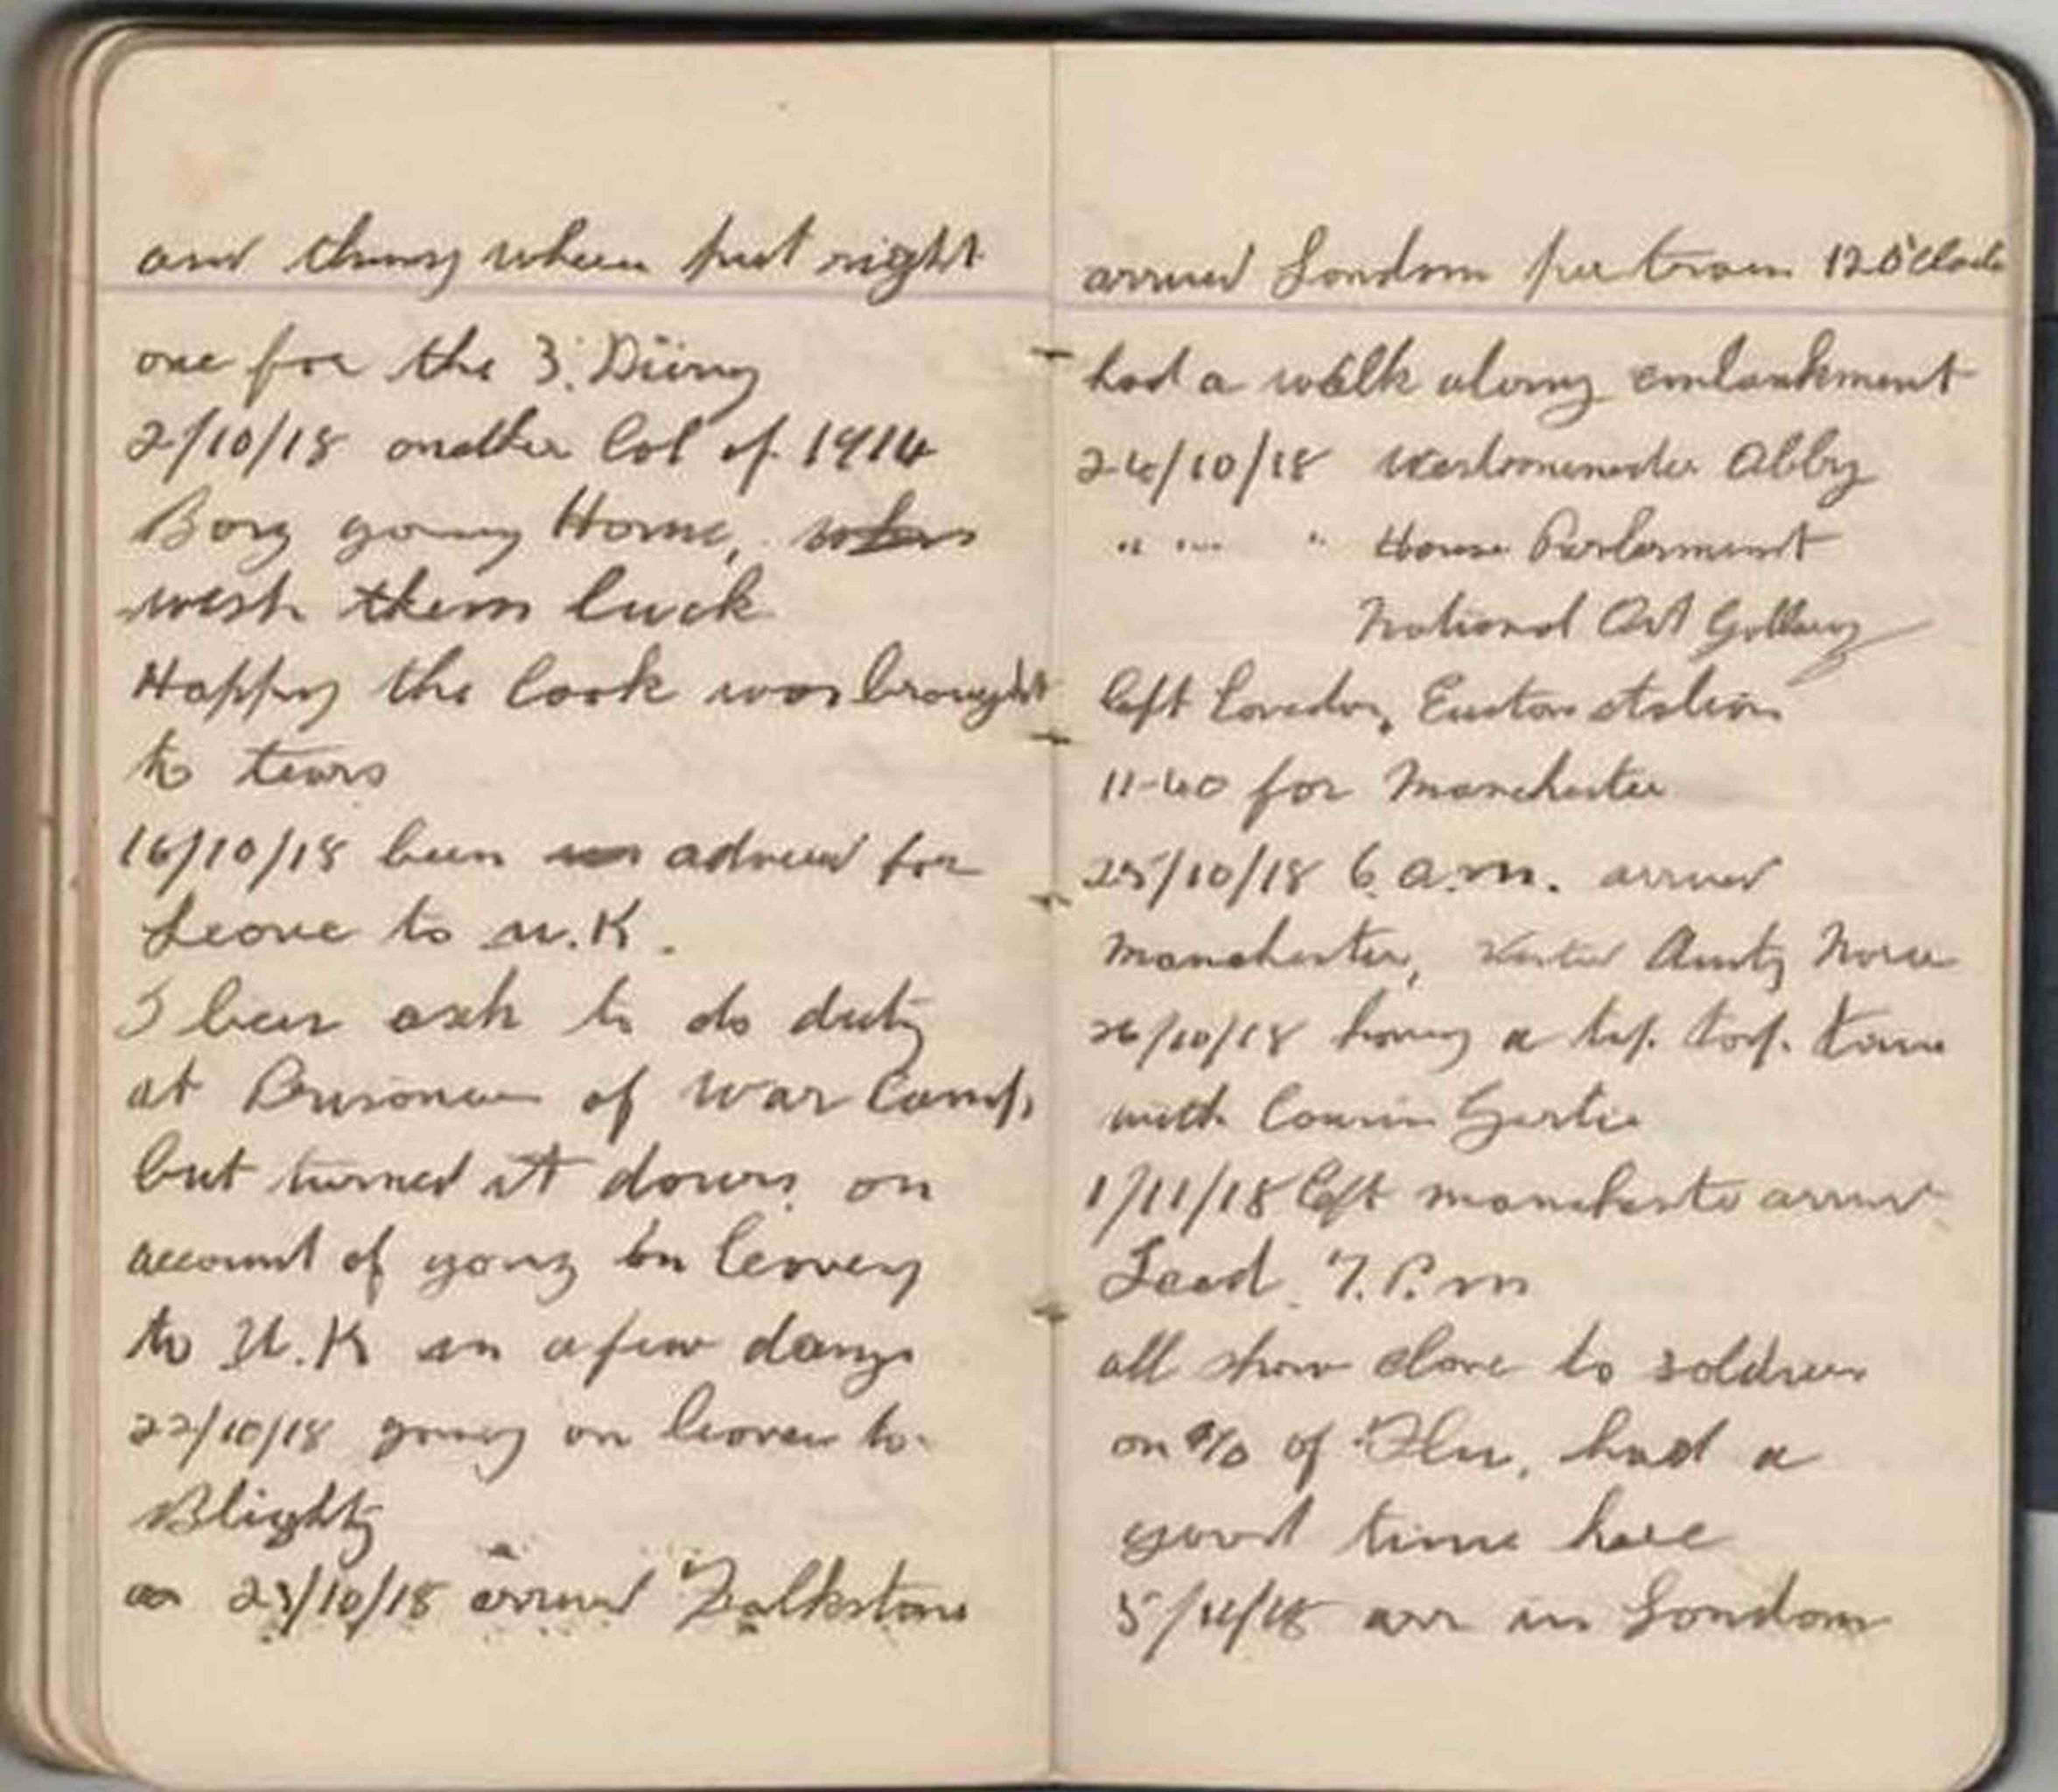 and things when put right
one for the 3. Diary
2/10/18 another lot of 1914
Boys going Home,
wish them luck
Happy the Cook was brought
to tears
16/10/18 been advised for
Leave to U.K.
I been ask to do duty
at Prisoner of War Camp,
but turned it down on
account of going on leave
to U.K in a few days
22/10/18 going on leave to
Blighty
23/10/18 arrived Folkstone
arrived London per train 12 O'Clock
had a walk along embankment
24/10/18 Westminester Abby
" " " House Parlerment
National Art Gallery
left London, Euston station
11-40 for Manchester
25/10/18 6 a.m. arrived
Manchester, Visited Aunty
26/10/18 having a tip. top. time
with Cousin Gertie
1/11/18 left Manchester arrived
Leed 7.P.m
all show close to soldiers
on a/c of Flu, had a
good time here
5/11/18 arr in London